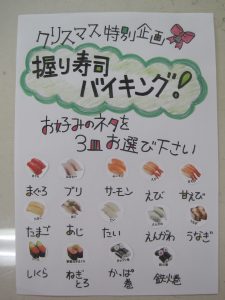 クリスマス特別企画
握り寿司
バイキング!
お好みのネタを
3皿お選び下さい
まぐろ ブリ サーモン えび 甘えび
たまご あじ たい えんがわ うなぎ
いくら ねぎとろ かっぱ巻 鉄火巻